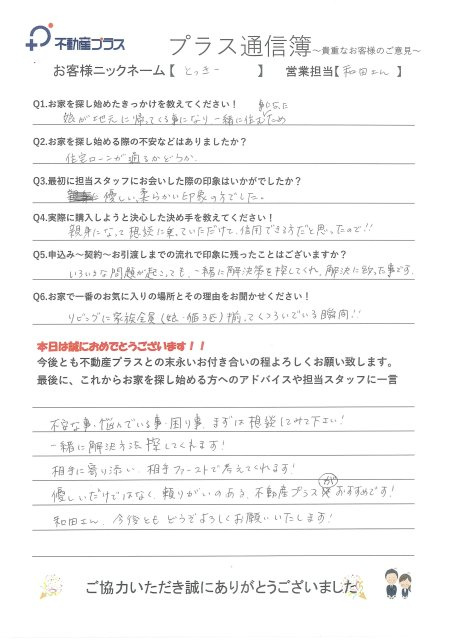 不動産プラス
プラス通信簿～貴重なお客様のご意見～
お客様ニックネーム【 とっきー 】 営業担当【 和田さん 】
Q1.お家を探し始めたきっかけを教えてください！
娘が地元に帰ってくる事になり一緒に住むため
Q2.お家を探し始める際の不安などはありましたか？
住宅ローンが通るかどうか。
Q3.最初に担当スタッフにお会いした際の印象はいかがでしたか？
優しい、柔らかい印象の方でした。
Q4.実際に購入しようと決心した決め手を教えてください！
親身になって相談に乗っていただけて、信用できる方だと思ったので!!
Q5.申込み～契約～お引渡しまでの流れで印象に残ったことはございますか？
いろいろな問題が起こっても、一緒に解決策を探してくれ、解決に至った事です。
Q6.お家で一番のお気に入りの場所とその理由をお聞かせください！
リビングに家族全員(娘・猫3匹)揃ってくつろいでいる瞬間!!
本日は誠におめでとうございます！！
今後とも不動産プラスとの末永いお付き合いの程よろしくお願い致します。
最後に、これからお家を探し始める方へのアドバイスや担当スタッフに一言
不安な事・悩んでいる事・困り事、まずは相談してみて下さい!
一緒に解決方法探してくれます!
相手に寄り添い、相手ファーストで考えてくれます!
優しいだけではなく、頼りがいのある、不動産プラスがおすすめです!
和田さん、今後とも どうぞよろしくお願いいたします!
ご協力いただき誠にありがとうございました